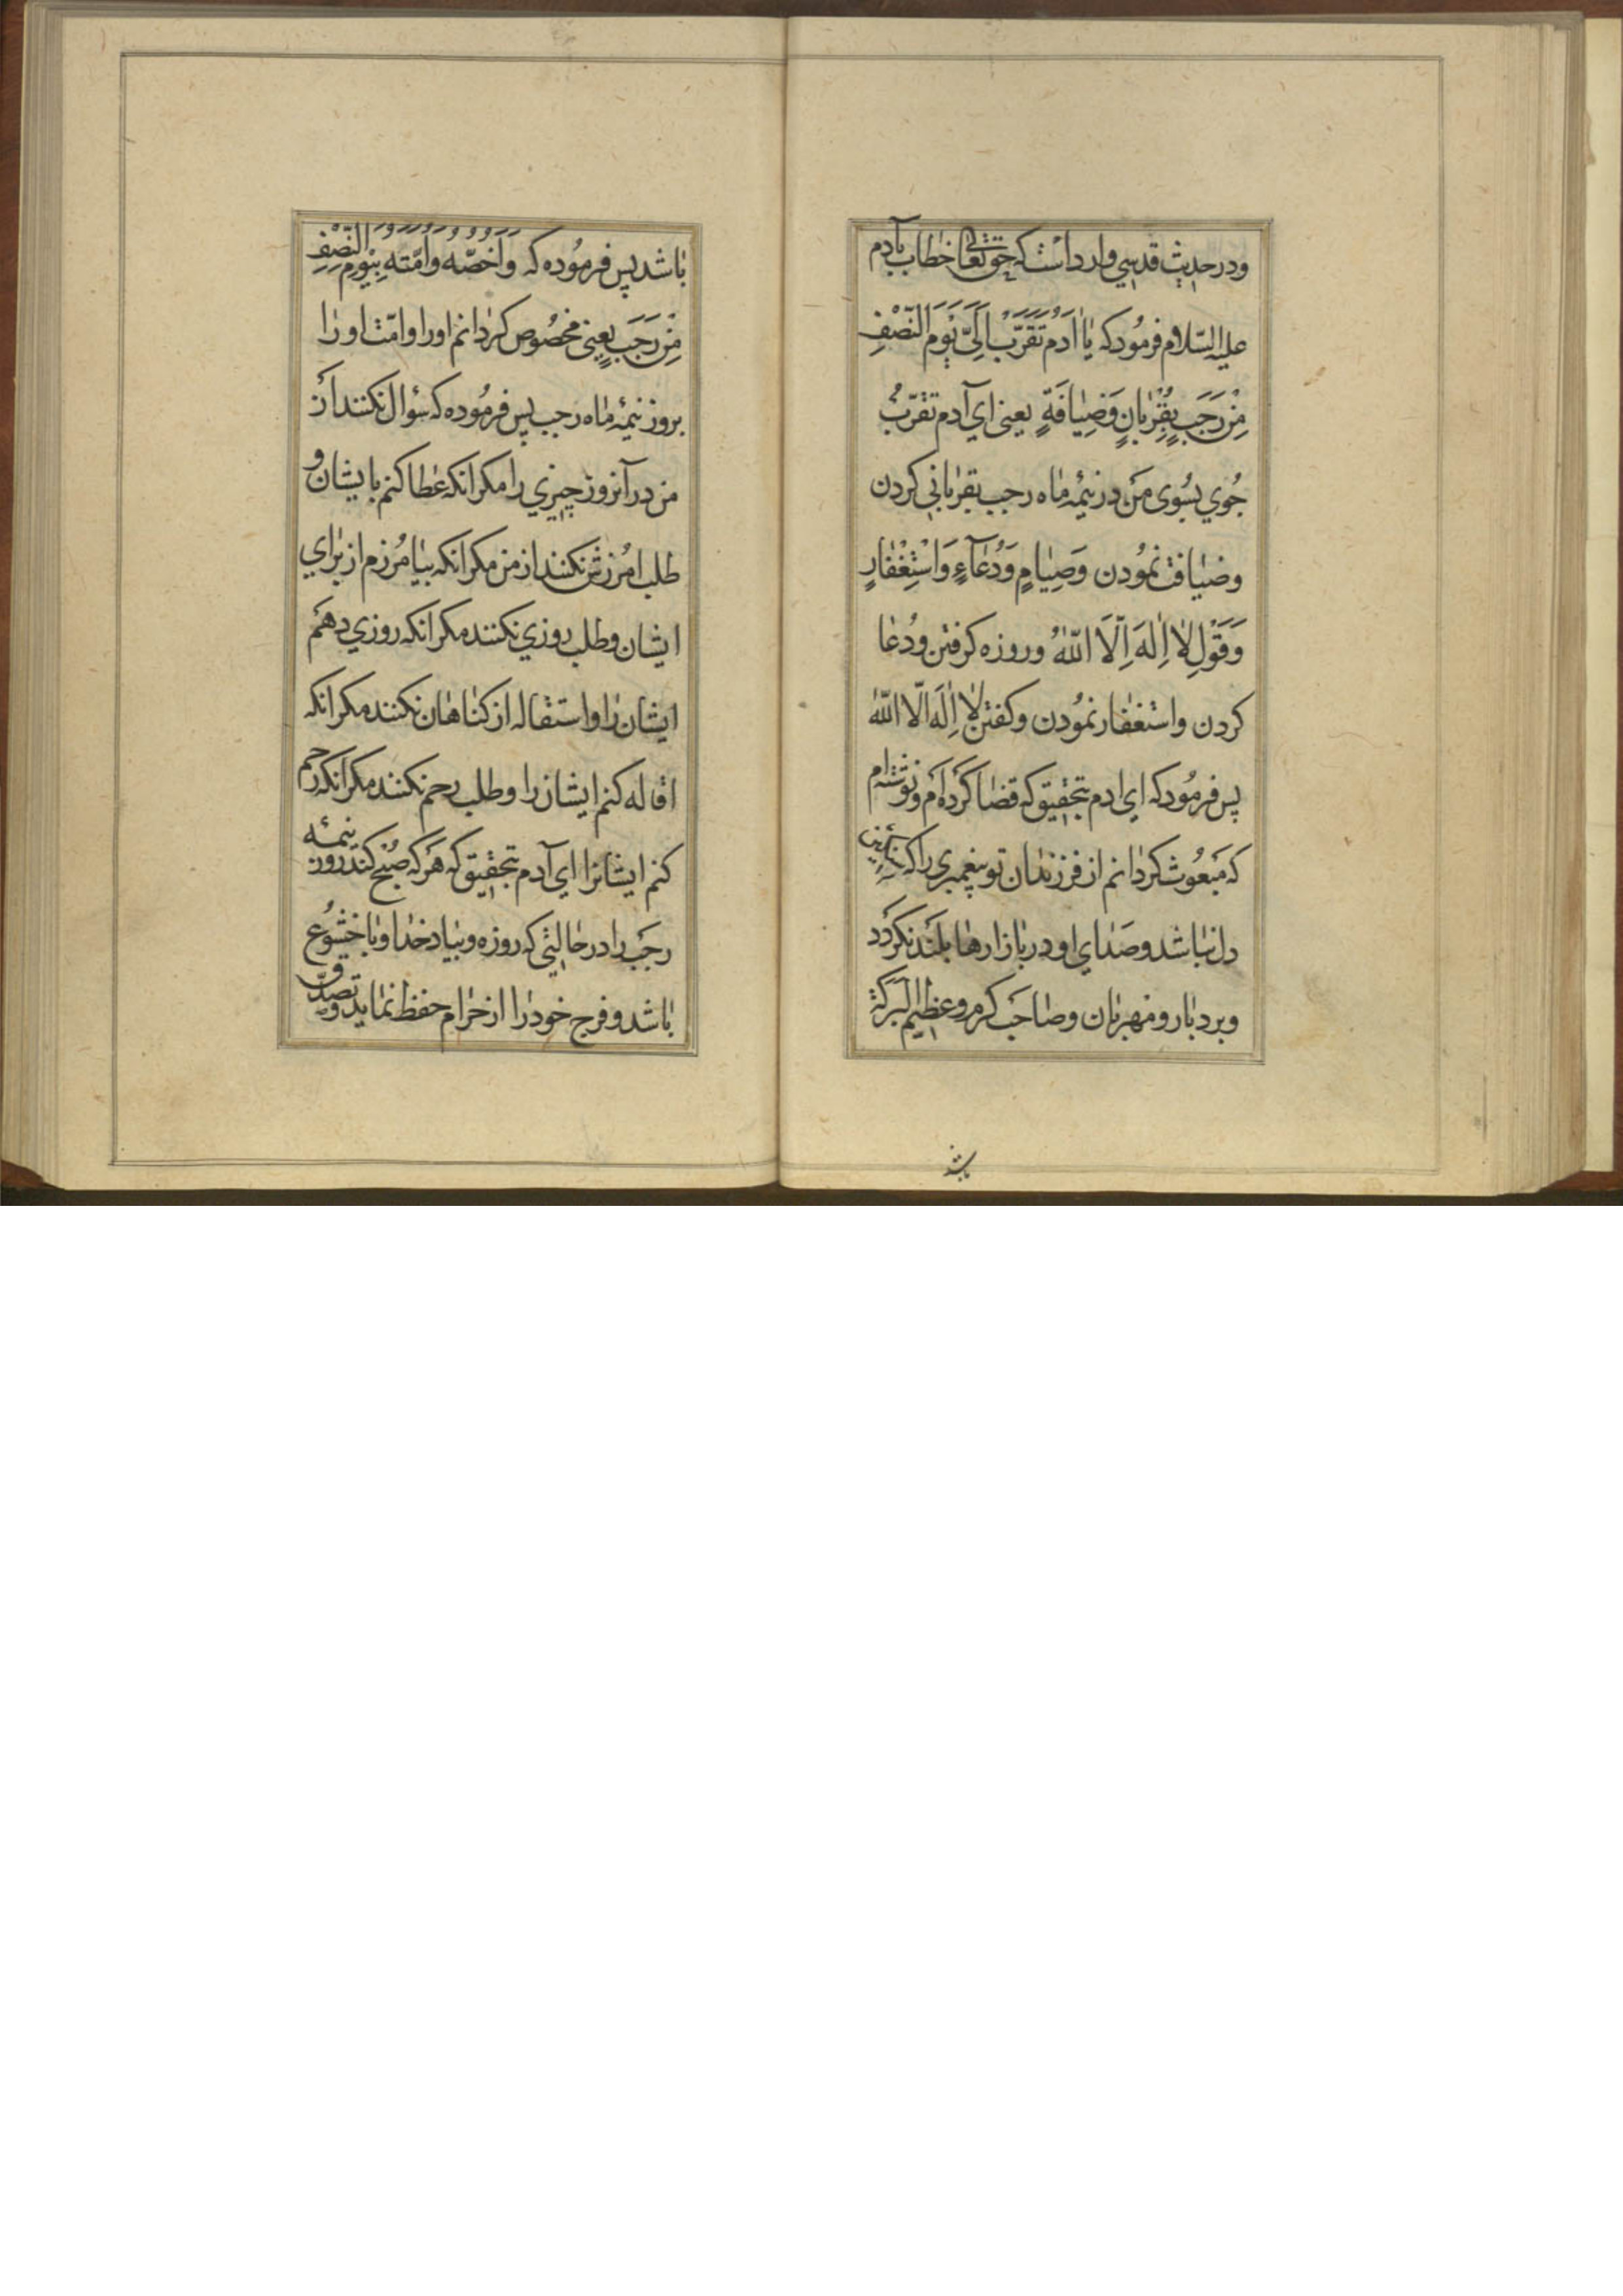 ودر حدیث قدسی وارد است که حق تعالی خطاب بآدم
علیه السّلام فرمُود که یا اٰدَم تَقَرَّبْ اِلَیَّ یَوْمَ النِّصْفِ
مِنْ رَجَبٍ بِقُرْبانٍ وَضِیافَةٍ یعنی ای آدم تقرّب
جُوی بسُوی من در نیمۀ ماه رجب بقربانی کردن
وضیافت نمُودن وَصِیامٍ وَدُعآءٍ وَاسْتِغْفارٍ
وَقَوْلِ لا اِلٰهَ اِلَّا اللّٰهُ وروزه کرفتن ودُعا
کردن واستغفار نمُودن وکفتن لا اِلٰهَ الّا اللّٰه
پس فرمُود که ای ادم بتحقیق که قضا کرده‌ام ونوشته‌ام
که مَبعُوث کردانم از فرزندان تو پیغمبری را که
دل نباشد وصَدای او در بازارها بلند نکردد
وبردبار ومهربان وصاحب کرم وعظیم البرکة
باشد
باشد پس فرمُوده که وَاَخُصُّهُ وَاُمَّتَهُ بِیَوْمِ النِّصْفِ
مِنْ رَجَبٍ یعنی مخصُوص کردانم اورا وامّت اورا
بروز نیمۀ ماه رجب پس فرمُوده که سؤال نکنند از
من در آنروز چیزی را مکر انکه عطا کنم بایشان و
طلب امُرزش نکنند از من مکر انکه بیامُرزم از برای
ایشان وطلب روزی نکنند مکر انکه روزی دهم
ایشان را واستقاله از کناهان نکنند مکر انکه
اقاله کنم ایشان را وطلب رحم نکنند مکر انکه رحم
کنم ایشانرا ای آدم بتحقیق که هَر که صُبح کند روز نیمۀ
رجَب را در حالیتی که روزه وبیاد خدا وبا خشُوع
باشد وفرج خود را از حرام حفظ نماید وتصدّق